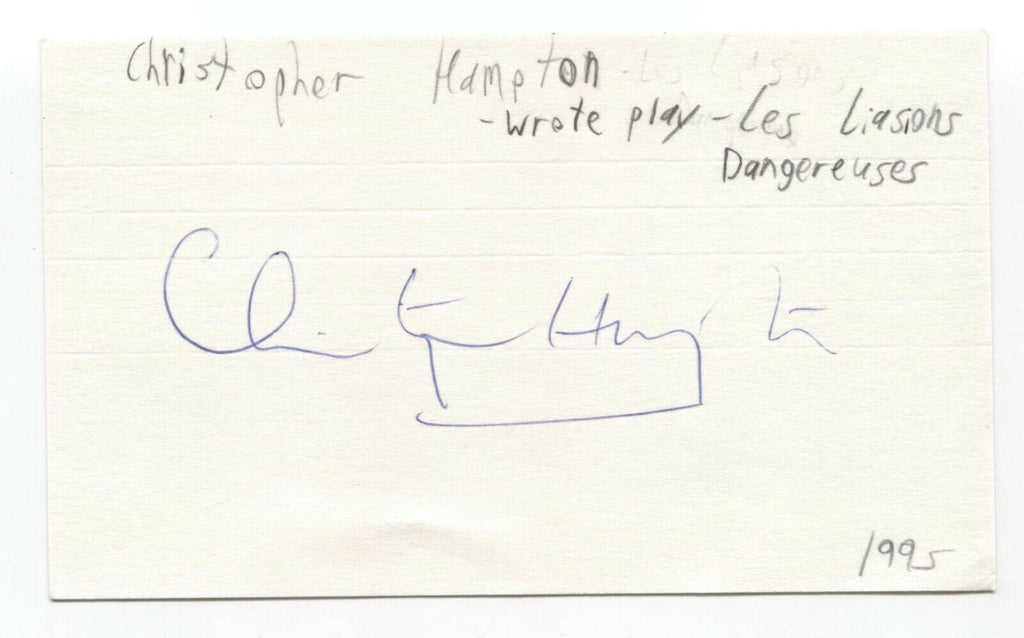 Christopher Hampton
-wrote play - Les Liasons
Dangereuses
Christopher Hampton
1995